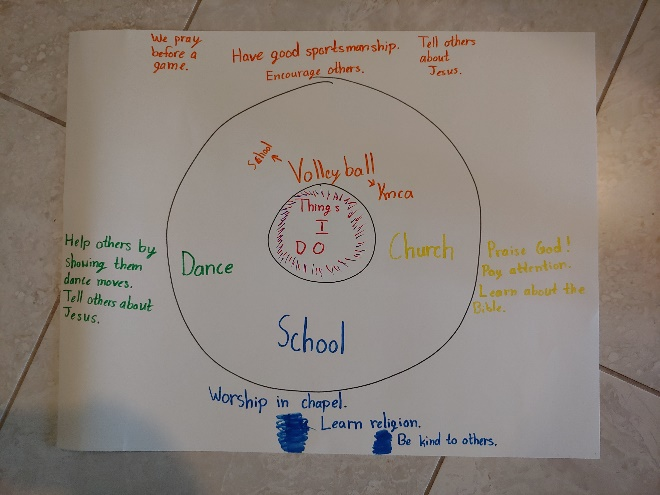 We pray
before a
game.
Have good sportsmanship.
Encourage others.
Tell others
about
Jesus.
School
Volleyball
Ymca
Things
I
DO
Help others by
showing them
dance moves.
Tell others about
Jesus.
Dance
Church
Praise God!
Pay attention.
Learn about the
Bible.
School
Worship in chapel.
Learn religion.
Be kind to others.